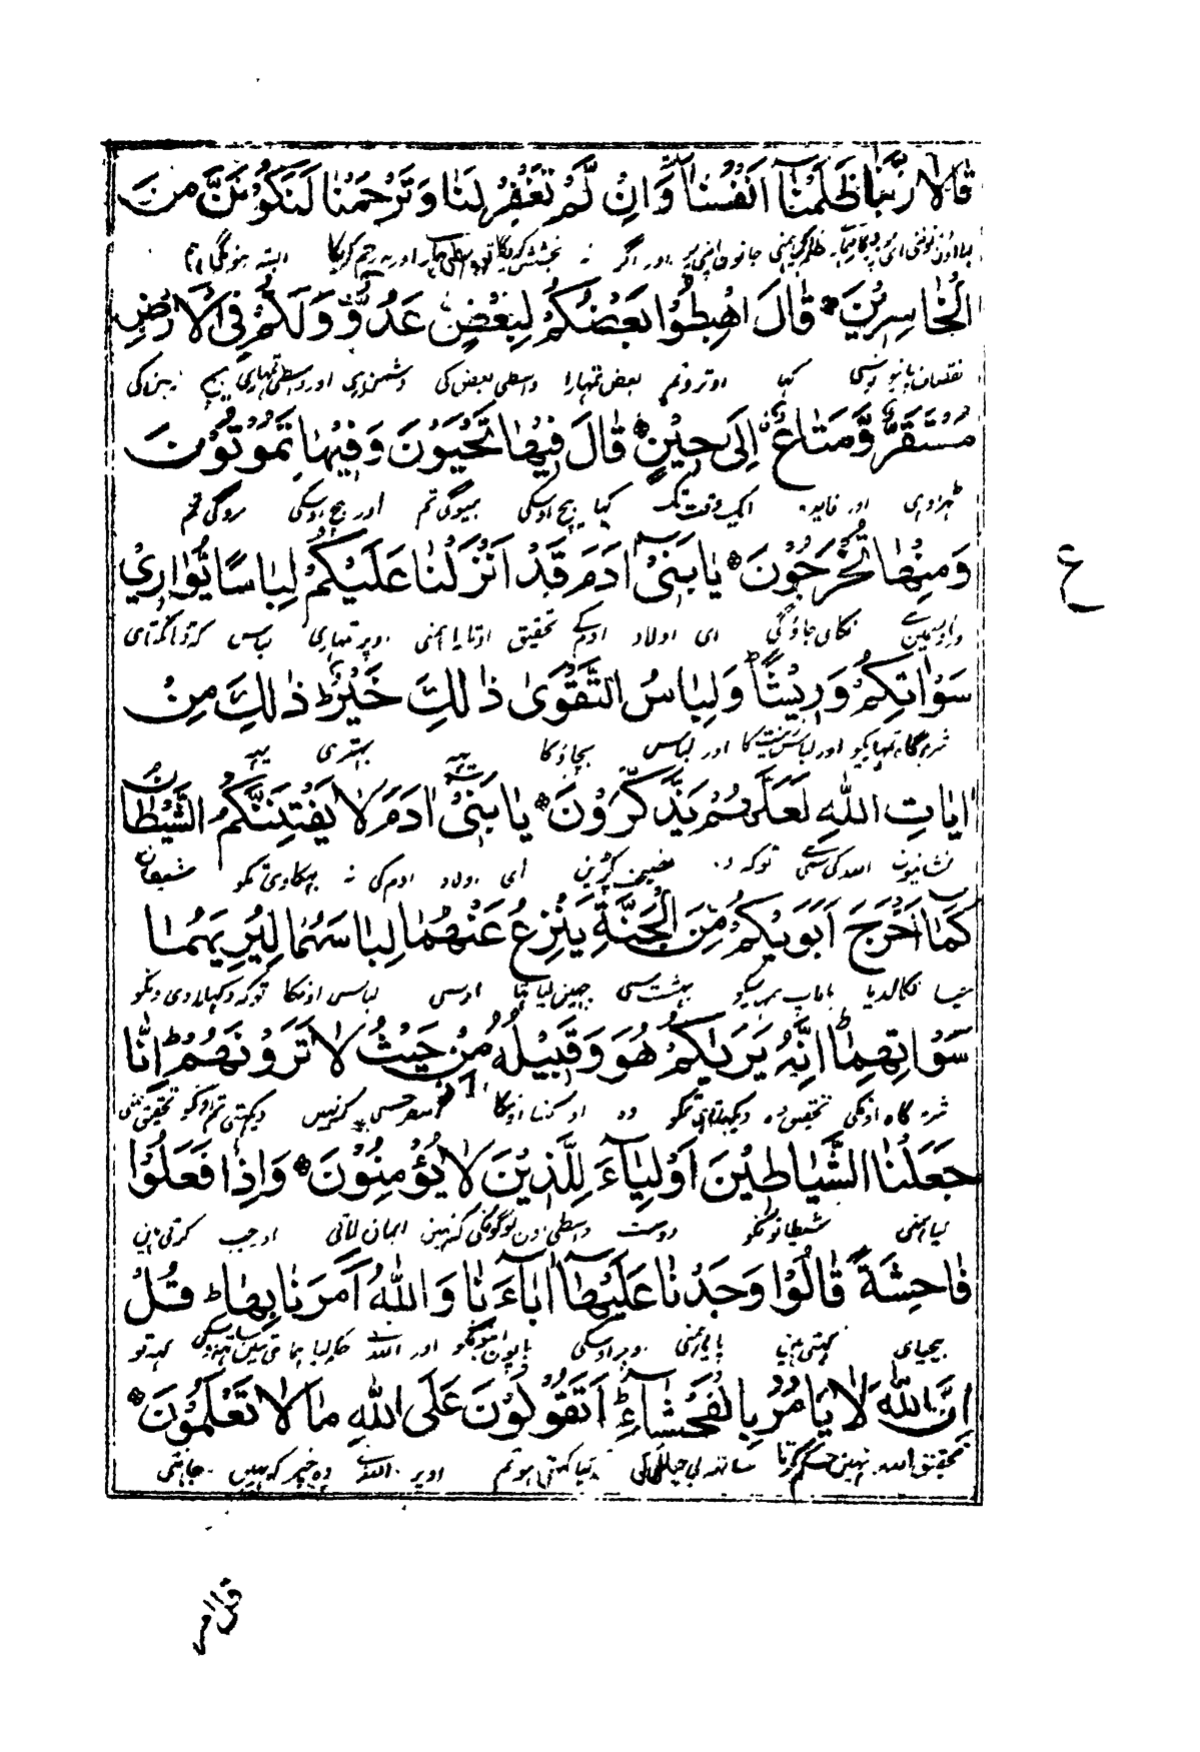 قَالَا رَبَّنَا ظَلَمْنَآ اَنْفُسَنَا وَاِنْ لَّمْ تَغْفِرْ لَنَا وَتَرْحَمْنَا لَنَكُوْنَنَّ مِنَ
جانون اپنی پر اور اگر نہ بخشش کریگا اور نہ رحم کریگا البتہ ہونگی ہم
الْخَاسِرِيْنَ قَالَ اهْبِطُوْا بَعْضُكُمْ لِبَعْضٍ عَدُوٌّ وَلَكُمْ فِى الْاَرْضِ
کہا اوترو تم بعض تمہارا واسطی بعض کی دشمن ہی اور واسطی تمہاری بیچ زمین کی
مُسْتَقَرٌّ وَّمَتَاعٌ اِلَى حِيْنٍ قَالَ فِيْهَا تَحْيَوْنَ وَفِيْهَا تَمُوْتُوْنَ
اور فایدہ ایک وقت تک کہا بیچ اوسکی جیوگی تم اور بیچ اوسکی مروگی تم
وَمِنْهَا تُخْرَجُوْنَ يَا بَنِىْٓ اٰدَمَ قَدْ اَنْزَلْنَا عَلَيْكُمْ لِبَاسًا يُّوَارِيْ
نکالی جاؤگی ای اولاد ادم کے تحقیق اوتارا ہمنی اوپر تمہاری لباس کہ ڈہانکتا ہی
سَوْاٰتِكُمْ وَرِيْشًا وَلِبَاسُ التَّقْوٰى ذٰلِكَ خَيْرٌ ذٰلِكَ مِنْ
شرمگاہ تمہاریکو اور لباس زینت کا اور لباس بچاؤ کا یہہ بہتر ہی یہہ
اٰيَاتِ اللّٰهِ لَعَلَّهُمْ يَذَّكَّرُوْنَ يَا بَنِىْٓ اٰدَمَ لَا يَفْتِنَنَّكُمُ الشَّيْطَانُ
نشانیون اللہ کی سی توکہ وہ نصیحت پکڑین ای اولاد ادم کی نہ بہکاوی تمکو شیطان
كَمَآ اَخْرَجَ اَبَوَيْكُمْ مِّنَ الْجَنَّةِ يَنْزِعُ عَنْهُمَا لِبَاسَهُمَا لِيُرِيَهُمَا
نکالدیا ماباپ تمہاریکو بہشت سی چہین لیا تہا اونسی لباس اونکا توکہ دکہلاوی اونکو
سَوْاٰتِهِمَا اِنَّهُ يَرٰىكُمْ هُوَ وَقَبِيْلُهُ مِنْ حَيْثُ لَا تَرَوْنَهُمْ اِنَّا
شرمگاہ اونکی تحقیق وہ دیکہتا ہی تمکو وہ اور کنبا اوسکا دیکہتی تم اونکو تحقیق
جَعَلْنَا الشَّيَاطِيْنَ اَوْلِيَآءَ لِلَّذِيْنَ لَا يُؤْمِنُوْنَ وَاِذَا فَعَلُوْا
کیا ہمنی شیطانونکو دوست واسطی اون لوگونکی کہ نہین ایمان لاتی اور جب کرتی ہین
فَاحِشَةً قَالُوْا وَجَدْنَا عَلَيْهَآ اٰبَآءَنَا وَاللّٰهُ اَمَرَنَا بِهَا قُلْ
بیحیای کہتی ہین پایا ہمنی اوپر اوسکی باپون اپنونکو اور اللہ کہہ تو
اِنَّ اللّٰهَ لَا يَأْمُرُ بِالْفَحْشَآءِ اَتَقُوْلُوْنَ عَلَى اللّٰهِ مَا لَا تَعْلَمُوْنَ
تحقیق اللہ نہین حکم کرتا ساتہہ بی حیائی کی کیا کہتی ہو تم اوپر اللہ کی وہ چیز کہ نہین جانتی
ع